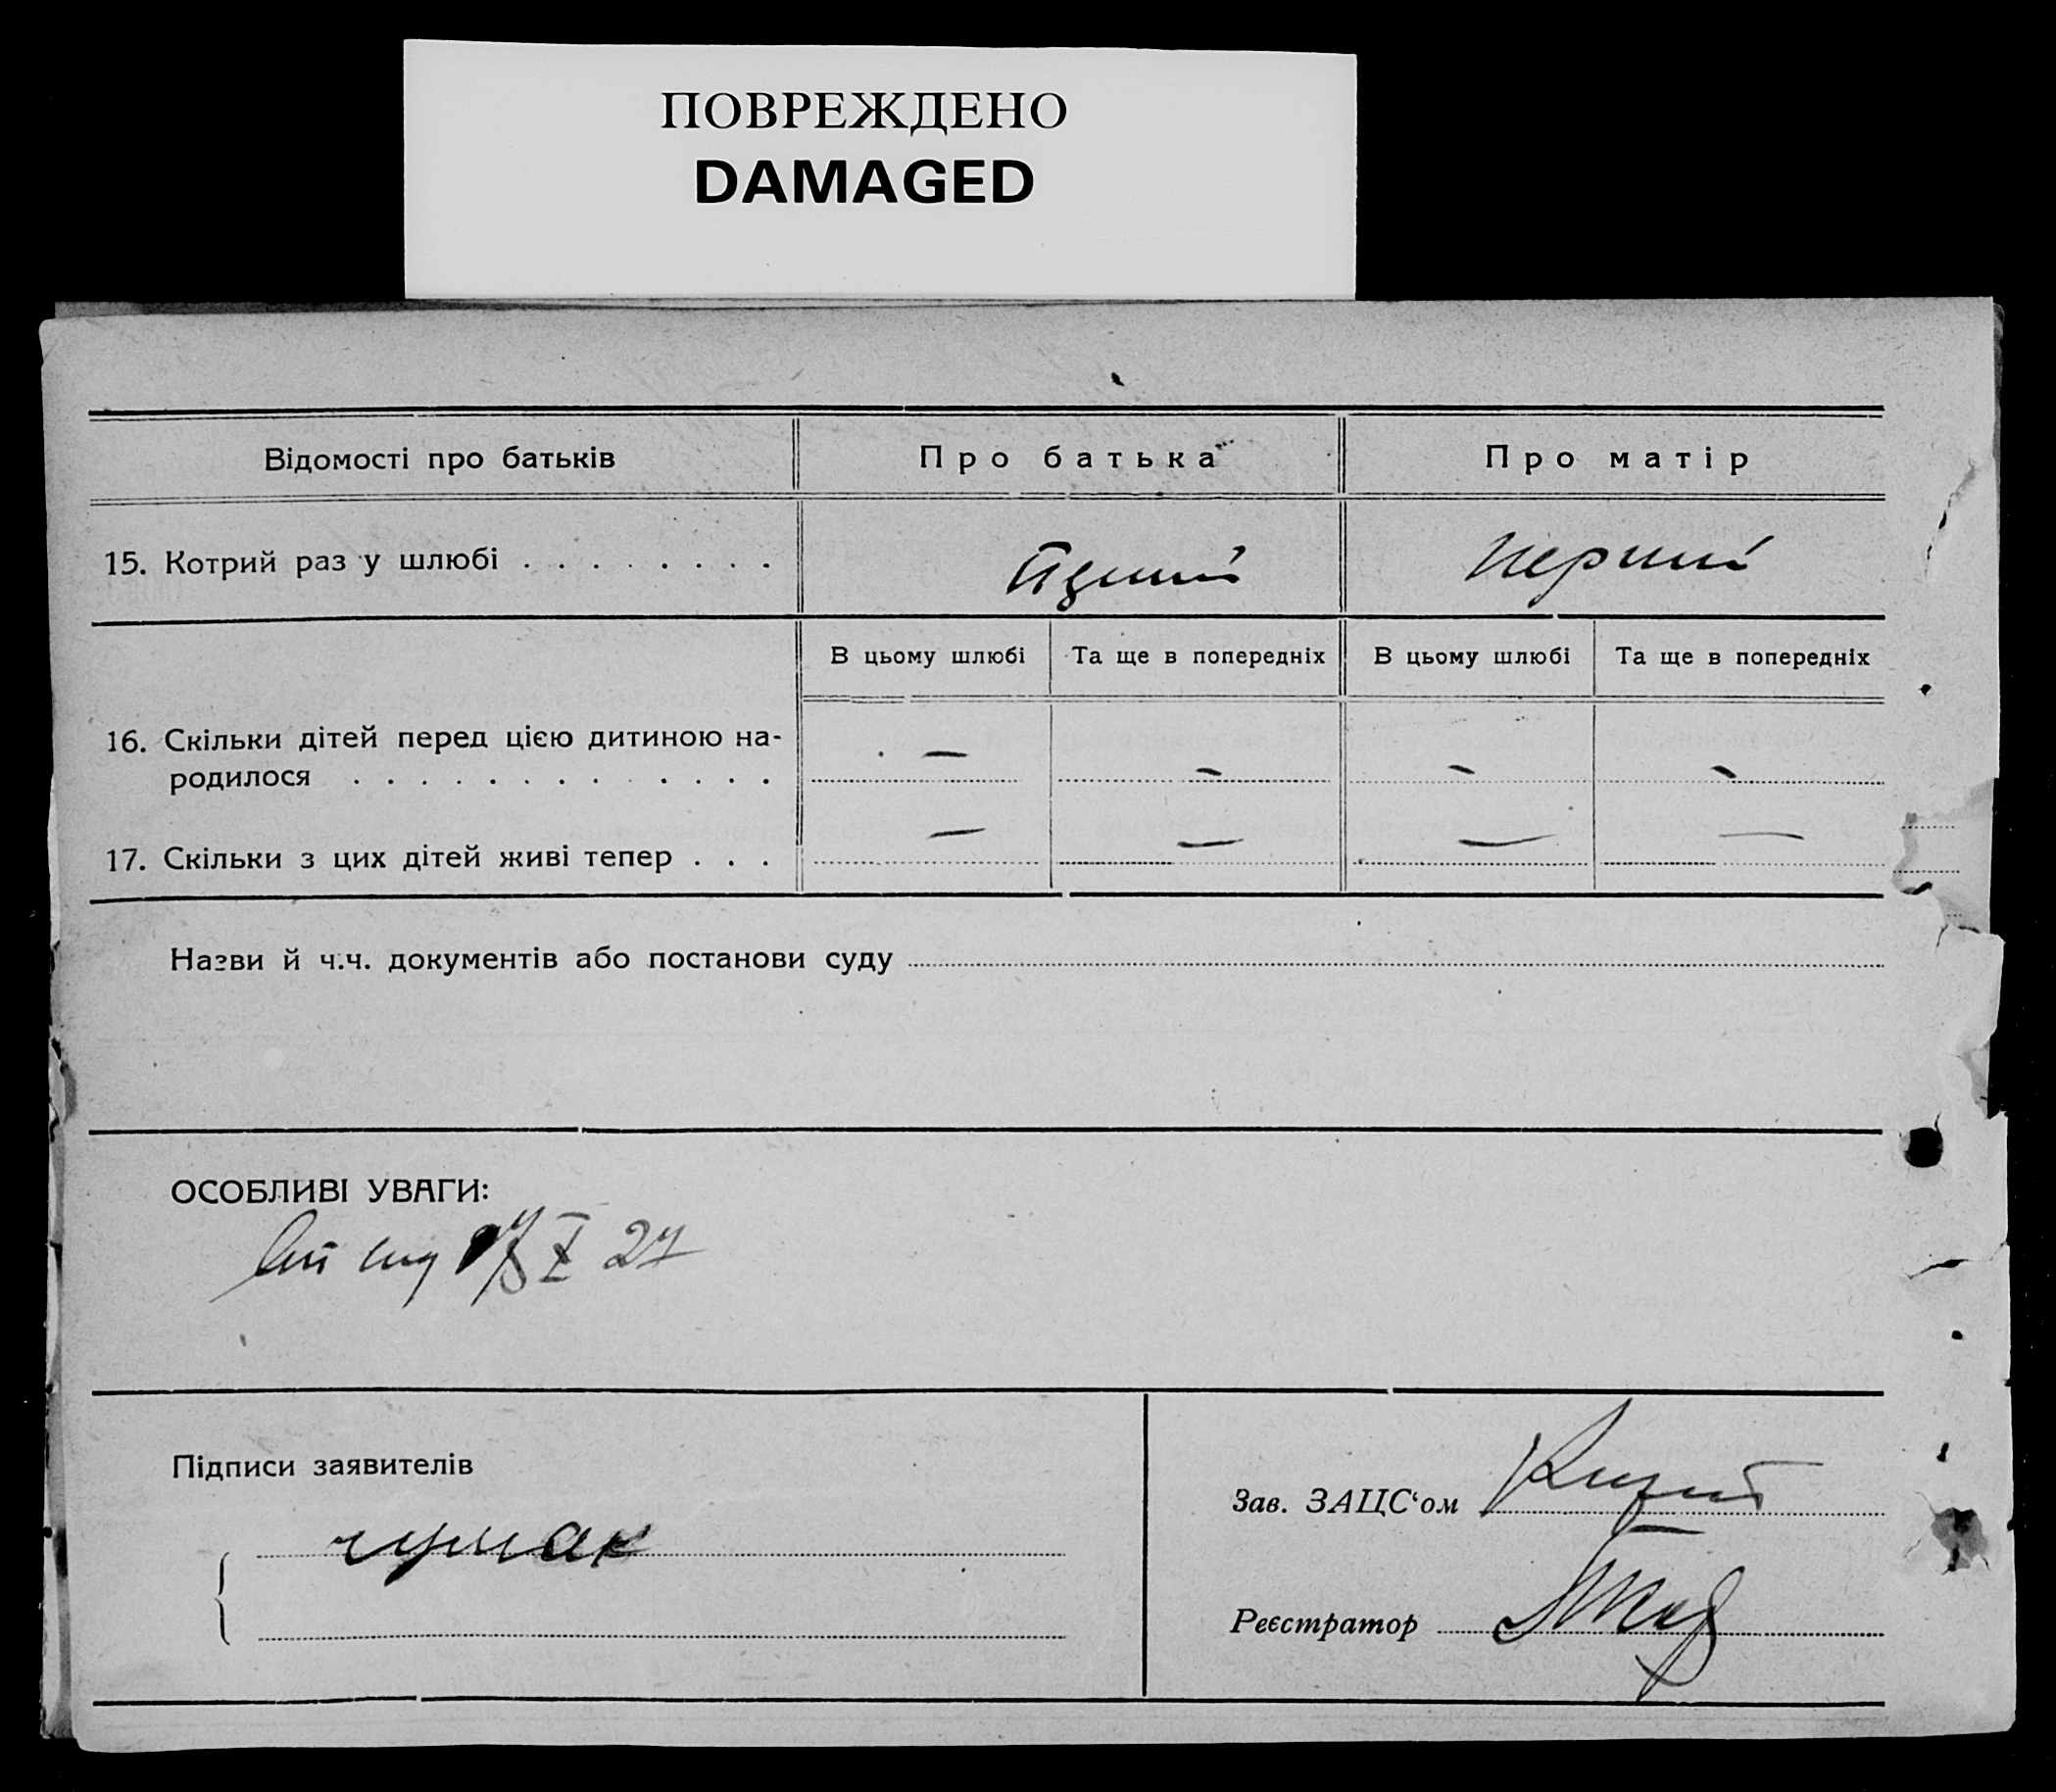 ПОВРЕЖДЕНО
DAMAGED
Відомості про батьків
Про батька
Про матір
15. Котрий раз у шлюбі . . . . . . . .
перший
В цьому шлюбі
Та ще в попередніх
В цьому шлюбі
Та ще в попередніх
16. Скільки дітей перед цією дитиною на-
родилося . . . . . . . . . . . . .
— - - -
17. Скільки з цих дітей живі тепер . . .
— — — —
Назви й ч.ч. документів або постанови суду
ОСОБЛИВІ УВАГИ:
X 27
Підписи заявителів
Зав. ЗАЦС‘ом
чумак
Реєстратор